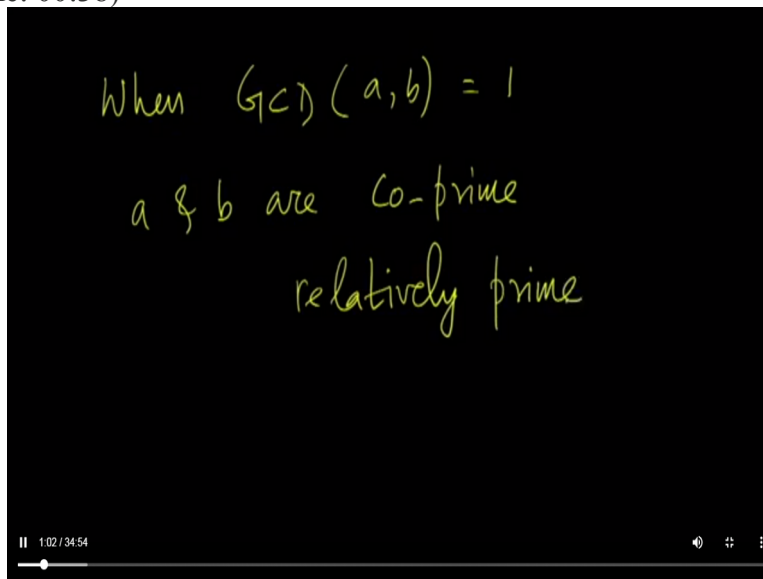 When GCD (a, b) = 1
a & b are co-prime
relatively prime
1:02 / 34:54